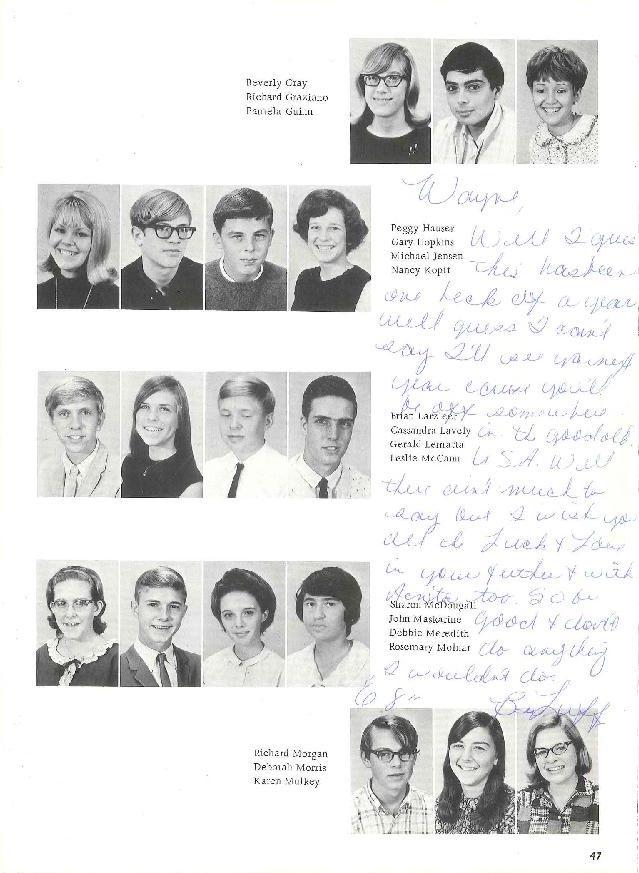 Beverly Gray
Richard Graziano
Pamela Guinn
Wayne,
Peggy Hauser
Gary Hopkins
Michael Jensen
Nancy Kopit
Well I guess
this has been
one heck of a year
well guess I can't
say I'll see ya next
year cause you'll
be off somewhere
in the good old
U.S.A. Well
there ain't much to
say but I wish you
all the Luck & Love
in your future & with
too. So be
good & don't
do anything
I wouldn't do.
Brian
Cassandra Lavely
Gerald Lematta
Leslie McCann
Sharon McDougall
John Maskarine
Debbie Meredith
Rosemary Molnar
68
Richard Morgan
Deborah Morris
Karen Mulkey
47